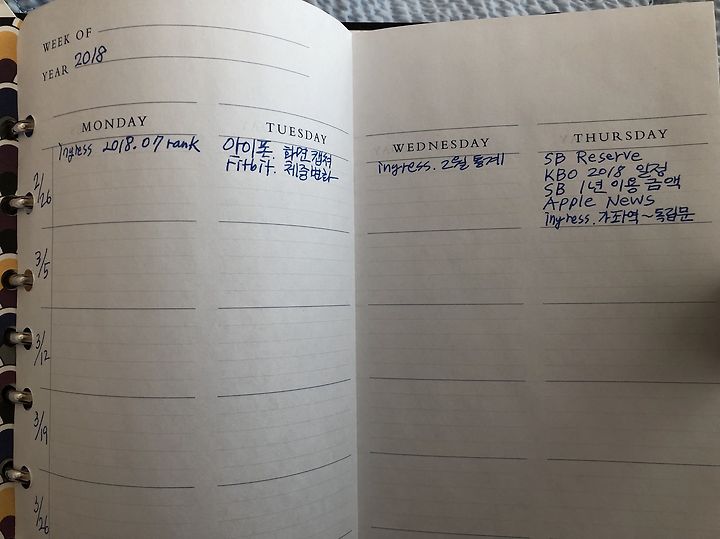 WEEK OF
YEAR 2018
MONDAY
TUESDAY
WEDNESDAY
THURSDAY
2/26
ingress 2018.07 rank
아이폰. 화면캡쳐
Fitbit. 체중변화
ingress. 2월 통계
SB Reserve
KBO 2018 일정
SB 1년 이용 금액
Apple News
ingress. 가좌역~독립문
3/5
3/12
3/19
3/26